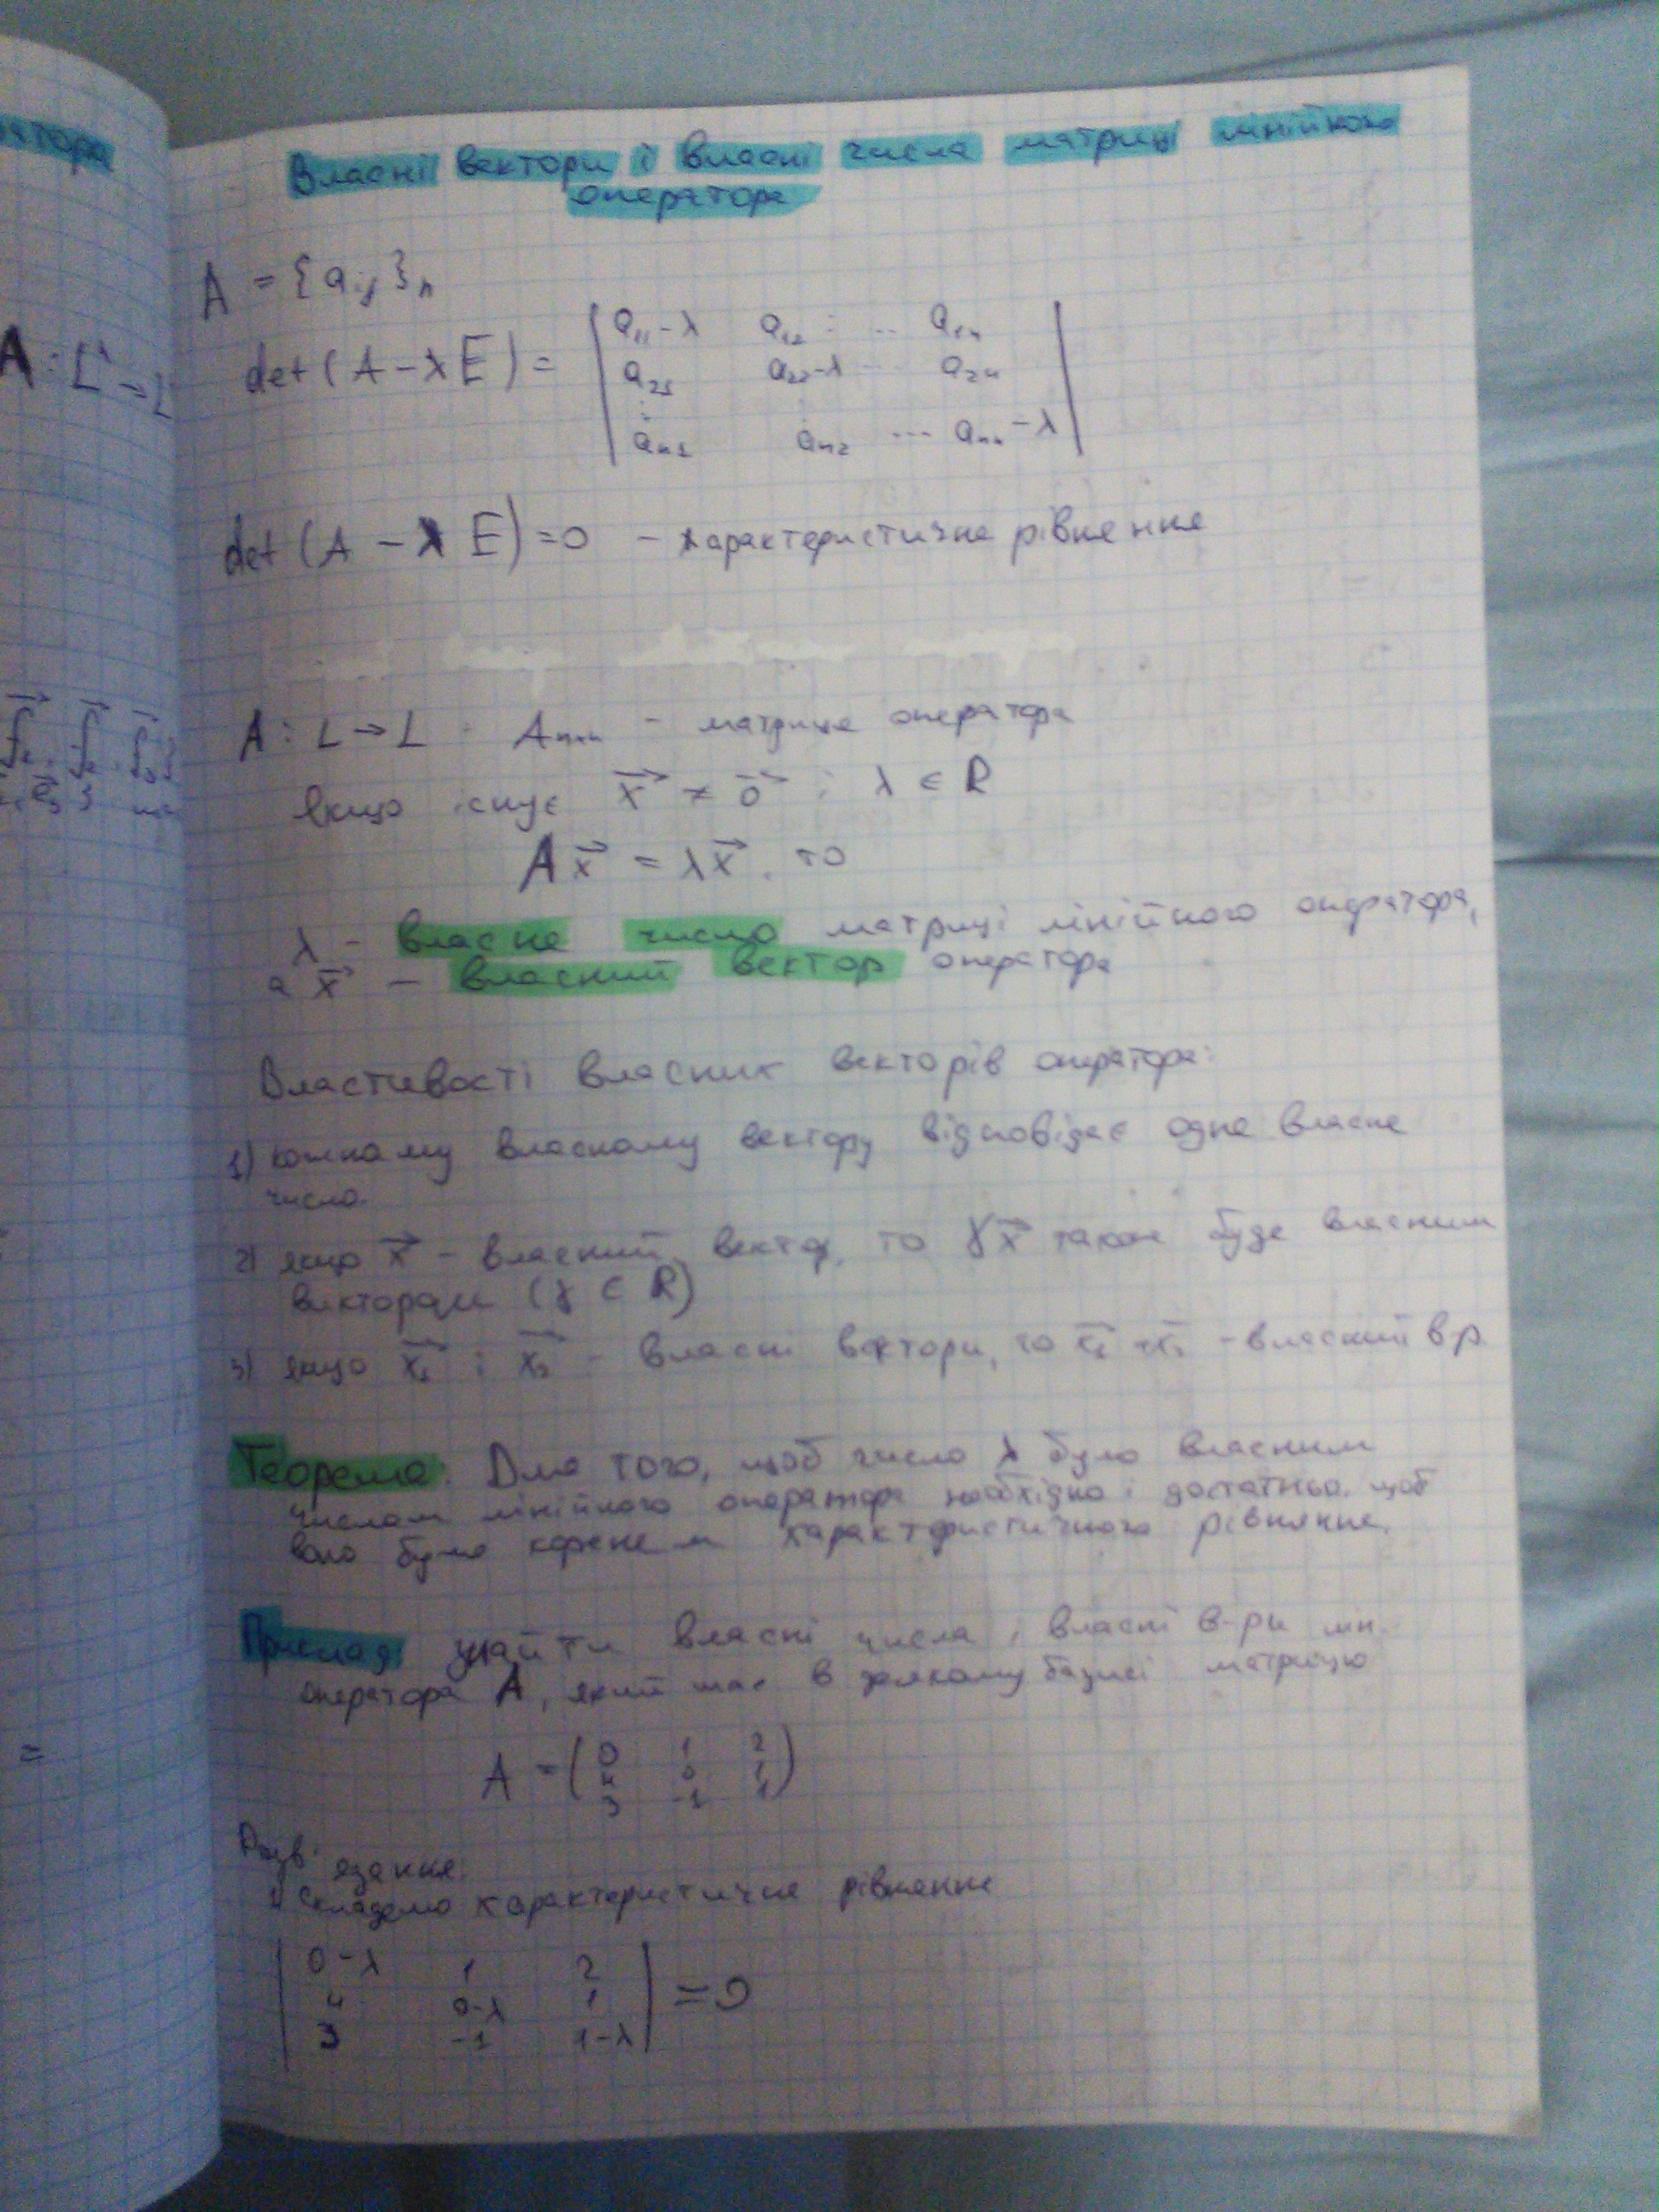 Власні вектори і власні числа матриці лінійного
оператора
A = {aij}n
det(A - λE) = | a11-λ a12 ... a1n
a21 a22-λ ... a2n
an1 an2 ... ann-λ |
det(A - λE) = 0 - характеристичне рівняння
A: L → L Anxn - матриця оператора
якщо існує x ≠ 0 і λ ∈ R
Ax = λx, то
λ - власне число матриці лінійного оператора,
а x - власний вектор оператора
Властивості власних векторів оператора:
1) кожному власному вектору відповідає одне власне
число.
2) якщо x - власний вектор, то γx також буде власним
вектором (γ ∈ R)
3) якщо x1 і x2 - власні вектори, то x1 + x2 - власний в-р
Теорема. Для того, щоб число λ було власним
числом лінійного оператора необхідно і достатньо, щоб
воно було коренем характеристичного рівняння.
Приклад знайти власні числа і власні в-ри лін.
оператора A, який має в деякому базисі матрицю
A = ( 0 1 2
4 0 1
3 -1 1 )
Розв'
язання:
1) Складемо характеристичне рівняння
| 0-λ 1 2
4 0-λ 1
3 -1 1-λ | = 0
ятора
A: L → L
=